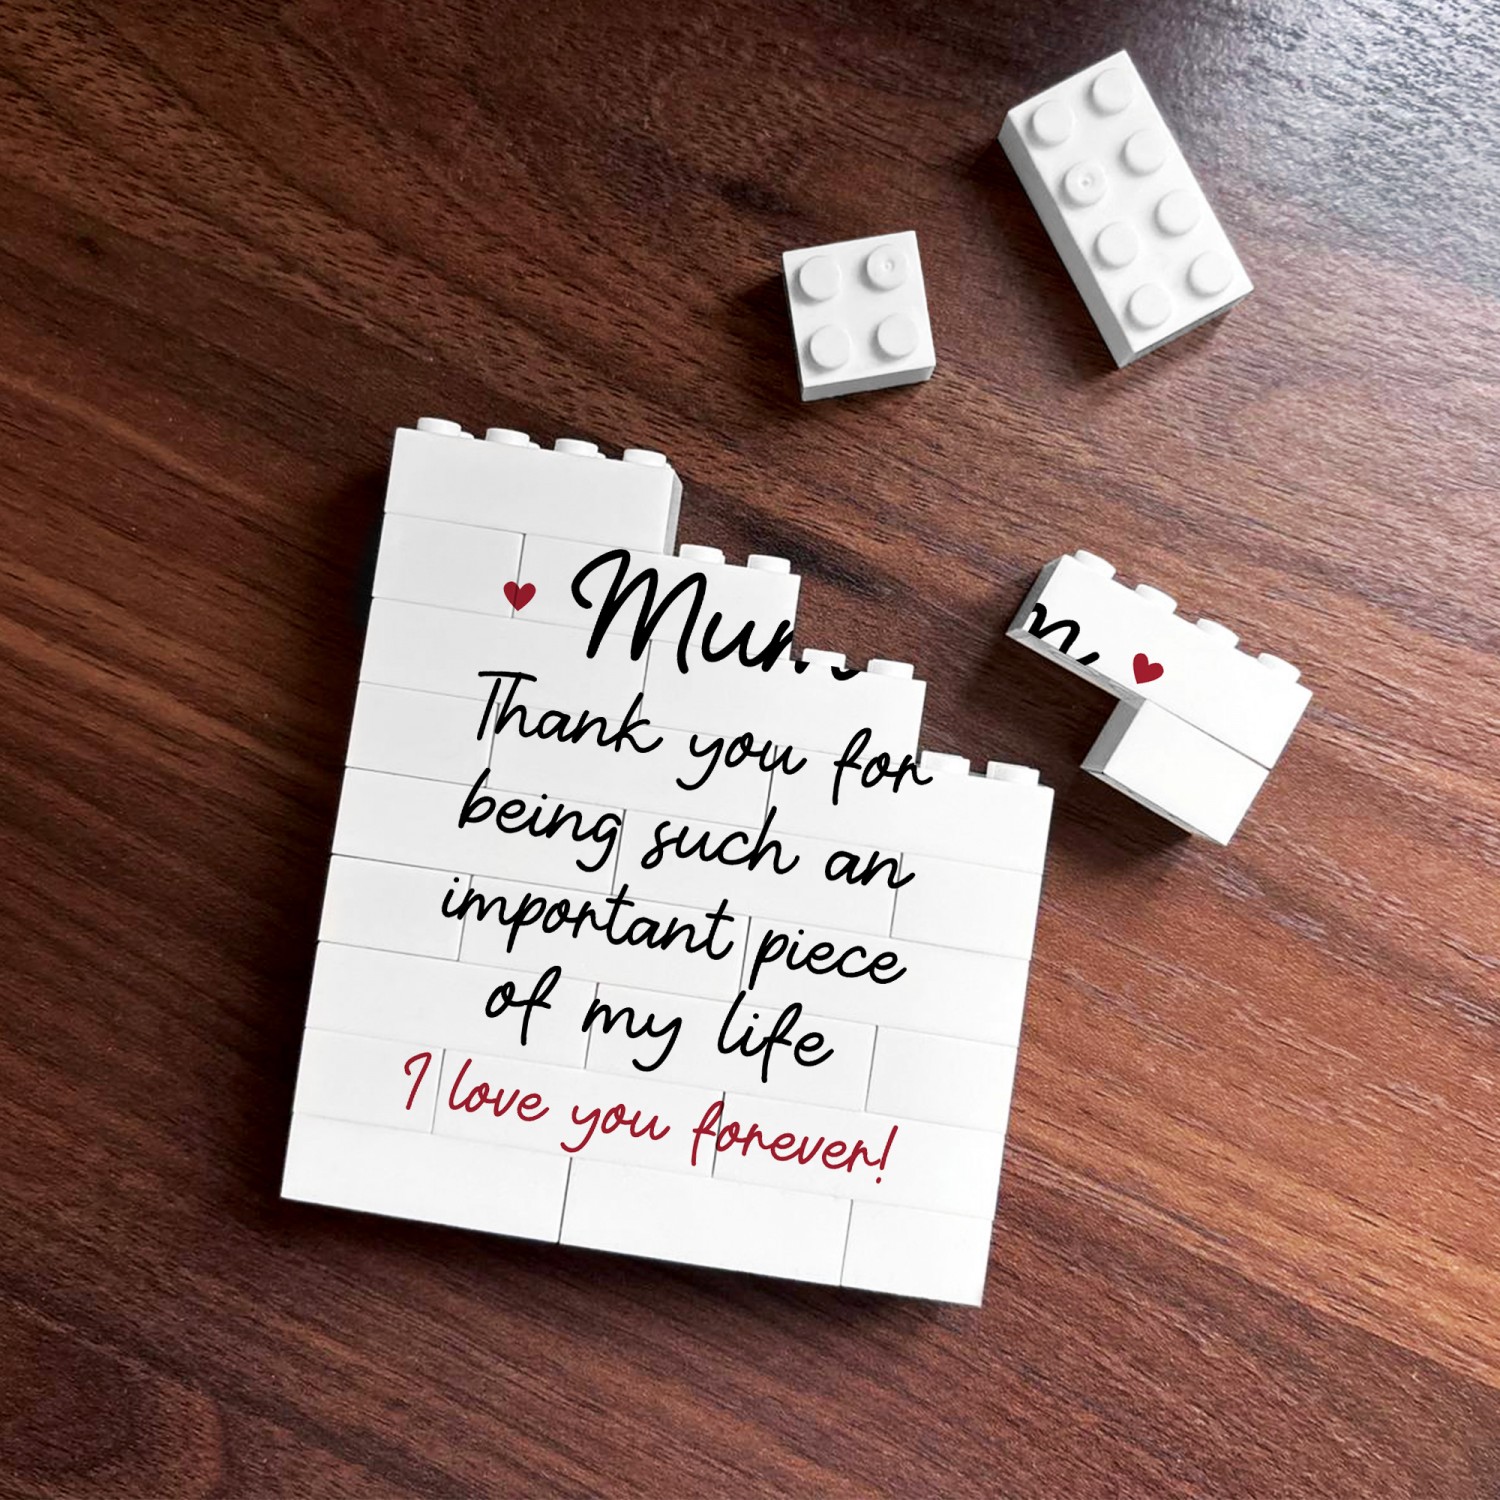 ♥ Mum ♥
Thank you for
being such an
important piece
of my life
I love you forever!